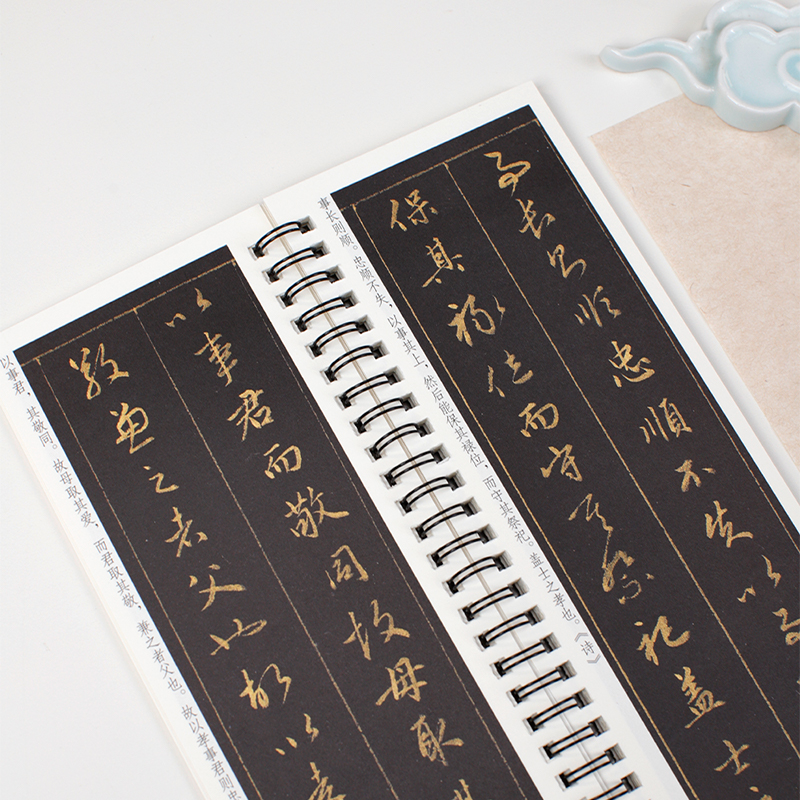 以事君而敬同故母取
敬兼之者父也故以孝
以事君，其敬同。故母取其爱，而君取其敬，兼之者父也。故以孝事君则忠
事長則順忠順不失以事
保其祿位而守其祭祀盖士
事长则顺。忠顺不失，以事其上，然后能保其禄位，而守其祭祀。盖士之孝也。《诗》